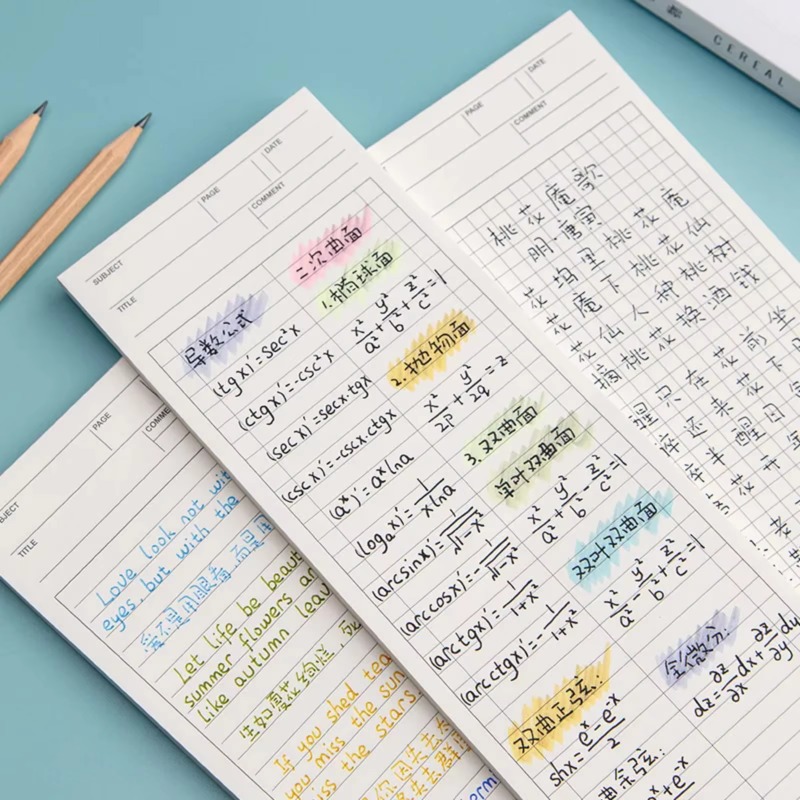 CEREAL
SUBJECT
PAGE
DATE
COMMENT
TITLE
导数公式
(tg x)'=sec²x
(ctg x)'=-csc²x
(sec x)'=secx·tgx
(csc x)'=-cscx·ctgx
(aˣ)'=aˣlna
(logₐx)'=1/(xlna)
(arcsinx)'=1/√(1-x²)
(arccosx)'=-1/√(1-x²)
(arctgx)'=1/(1+x²)
(arcctgx)'=-1/(1+x²)
双曲正弦:
shx=(eˣ-e⁻ˣ)/2
二次曲面
1.椭球面
x²/a²+y²/b²+z²/c²=1
2.抛物面
x²/2p+y²/2q=z
3.双曲面
单叶双曲面
x²/a²+y²/b²-z²/c²=1
双叶双曲面
x²/a²-y²/b²+z²/c²=1
全微分:
dz=∂z/∂x dx+∂z/∂y dy
PAGE
DATE
COMMENT
桃花庵歌
明·唐寅
花坞里桃花庵
花庵下桃花仙
花仙人种桃树
摘桃花换酒钱
醒只在花前坐
还来花下
半醒日
花开
PAGE
TITLE
Love look not with
eyes, but with the
爱不是用眼看,而是用
Let life be beaut
summer flowers an
like autumn leav
生如夏花绚烂,
If you shed tea
you miss the sun
miss the stars.